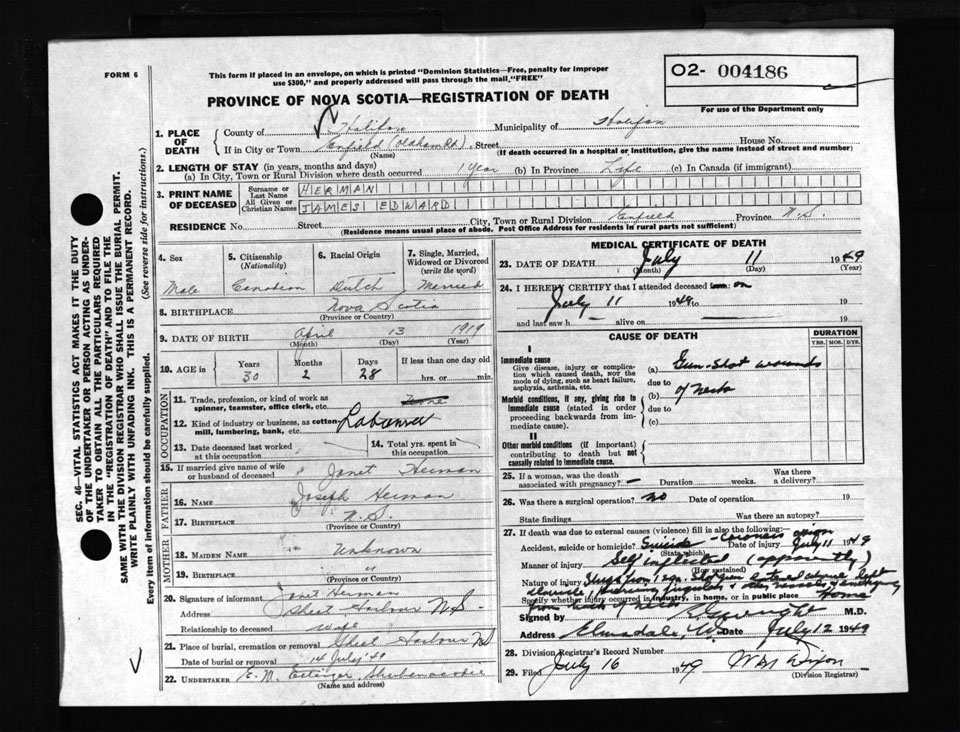 FORM 6
This form if placed in an envelope, on which is printed "Dominion Statistics—Free, penalty for improper
use $300," and properly addressed will pass through the mail "FREE"
O2- 004186
For use of the Department only
PROVINCE OF NOVA SCOTIA—REGISTRATION OF DEATH
1. PLACE OF DEATH
County of Halifax Municipality of Halifax
If in City or Town Enfield (Oldham Rd.) Street House No.
(Name) (If death occurred in a hospital or institution, give the name instead of street and number)
2. LENGTH OF STAY (in years, months and days)
(a) In City, Town or Rural Division where death occurred 1 Year (b) In Province Life (c) In Canada (if immigrant)
3. PRINT NAME OF DECEASED
Surname or Last Name HERMAN
All Given or Christian Names JAMES EDWARD
RESIDENCE No. Street City, Town or Rural Division Enfield Province N.S.
(Residence means usual place of abode. Post Office Address for residents in rural parts not sufficient)
4. Sex Male
5. Citizenship (Nationality) Canadian
6. Racial Origin Dutch
7. Single, Married, Widowed or Divorced (write the word) Married
8. BIRTHPLACE Nova Scotia
(Province or Country)
9. DATE OF BIRTH April 13 1919
(Month) (Day) (Year)
10. AGE in Years 30 Months 2 Days 28 If less than one day old hrs. or min.
OCCUPATION
11. Trade, profession, or kind of work as
spinner, teamster, office clerk, etc. None
12. Kind of industry or business, as cotton
mill, lumbering, bank, etc.
13. Date deceased last worked
at this occupation
14. Total yrs. spent in
this occupation
15. If married give name of wife
or husband of deceased Janet Herman
FATHER
16. Name Joseph Herman
17. Birthplace N.S.
(Province or Country)
MOTHER
18. MAIDEN NAME Unknown
19. BIRTHPLACE "
(Province or Country)
20. Signature of informant Janet Herman
Address Sheet Harbour N.S.
Relationship to deceased Wife
21. Place of burial, cremation or removal Sheet Harbour N.S.
Date of burial or removal 14 July '49
22. UNDERTAKER E. M. Ettinger, Shubenacadie
(Name and address)
MEDICAL CERTIFICATE OF DEATH
23. DATE OF DEATH July 11 1949
(Month) (Day) (Year)
24. I HEREBY CERTIFY that I attended deceased from: on
July 11 1949 to 19
and last saw h alive on 19
CAUSE OF DEATH
DURATION
YRS. MOS. DYS.
I
Immediate cause
Give disease, injury or complica-
tion which caused death, NOT the
mode of dying, such as heart failure,
asphyxia, asthenia, etc.
(a) Gun-shot wounds
due to of neck
Morbid conditions, if any, giving rise to
immediate cause (stated in order
proceeding backwards from im-
mediate cause).
(b)
due to
(c)
II
Other morbid conditions (if important)
contributing to death but NOT
causally related to immediate cause.
25. If a woman, was the death
associated with pregnancy? — Duration weeks. Was there a delivery?
26. Was there a surgical operation? no Date of operation 19
State findings Was there an autopsy?
27. If death was due to external causes (violence) fill in also the following:—
Accident, suicide or homicide? Suicide - Coroner's Date of injury July 11 1949
(State which)
Manner of injury Self inflicted (apparently)
(How sustained)
Nature of injury
Specify whether injury occurred in industry, in home, or in public place home
Signed by M.D.
Address Elmsdale, Date July 12 1949
28. Division Registrar's Record Number
29. Filed July 16 1949 Wm Dixon
(Division Registrar)
SEC. 46—VITAL STATISTICS ACT MAKES IT THE DUTY
OF THE UNDERTAKER OR PERSON ACTING AS UNDER-
TAKER TO OBTAIN ALL THE PARTICULARS REQUIRED
IN THE "REGISTRATION OF DEATH" AND TO FILE THE
SAME WITH THE DIVISION REGISTRAR WHO SHALL ISSUE THE BURIAL PERMIT.
WRITE PLAINLY WITH UNFADING INK. THIS IS A PERMANENT RECORD.
Every item of information should be carefully supplied. (See reverse side for instructions.)